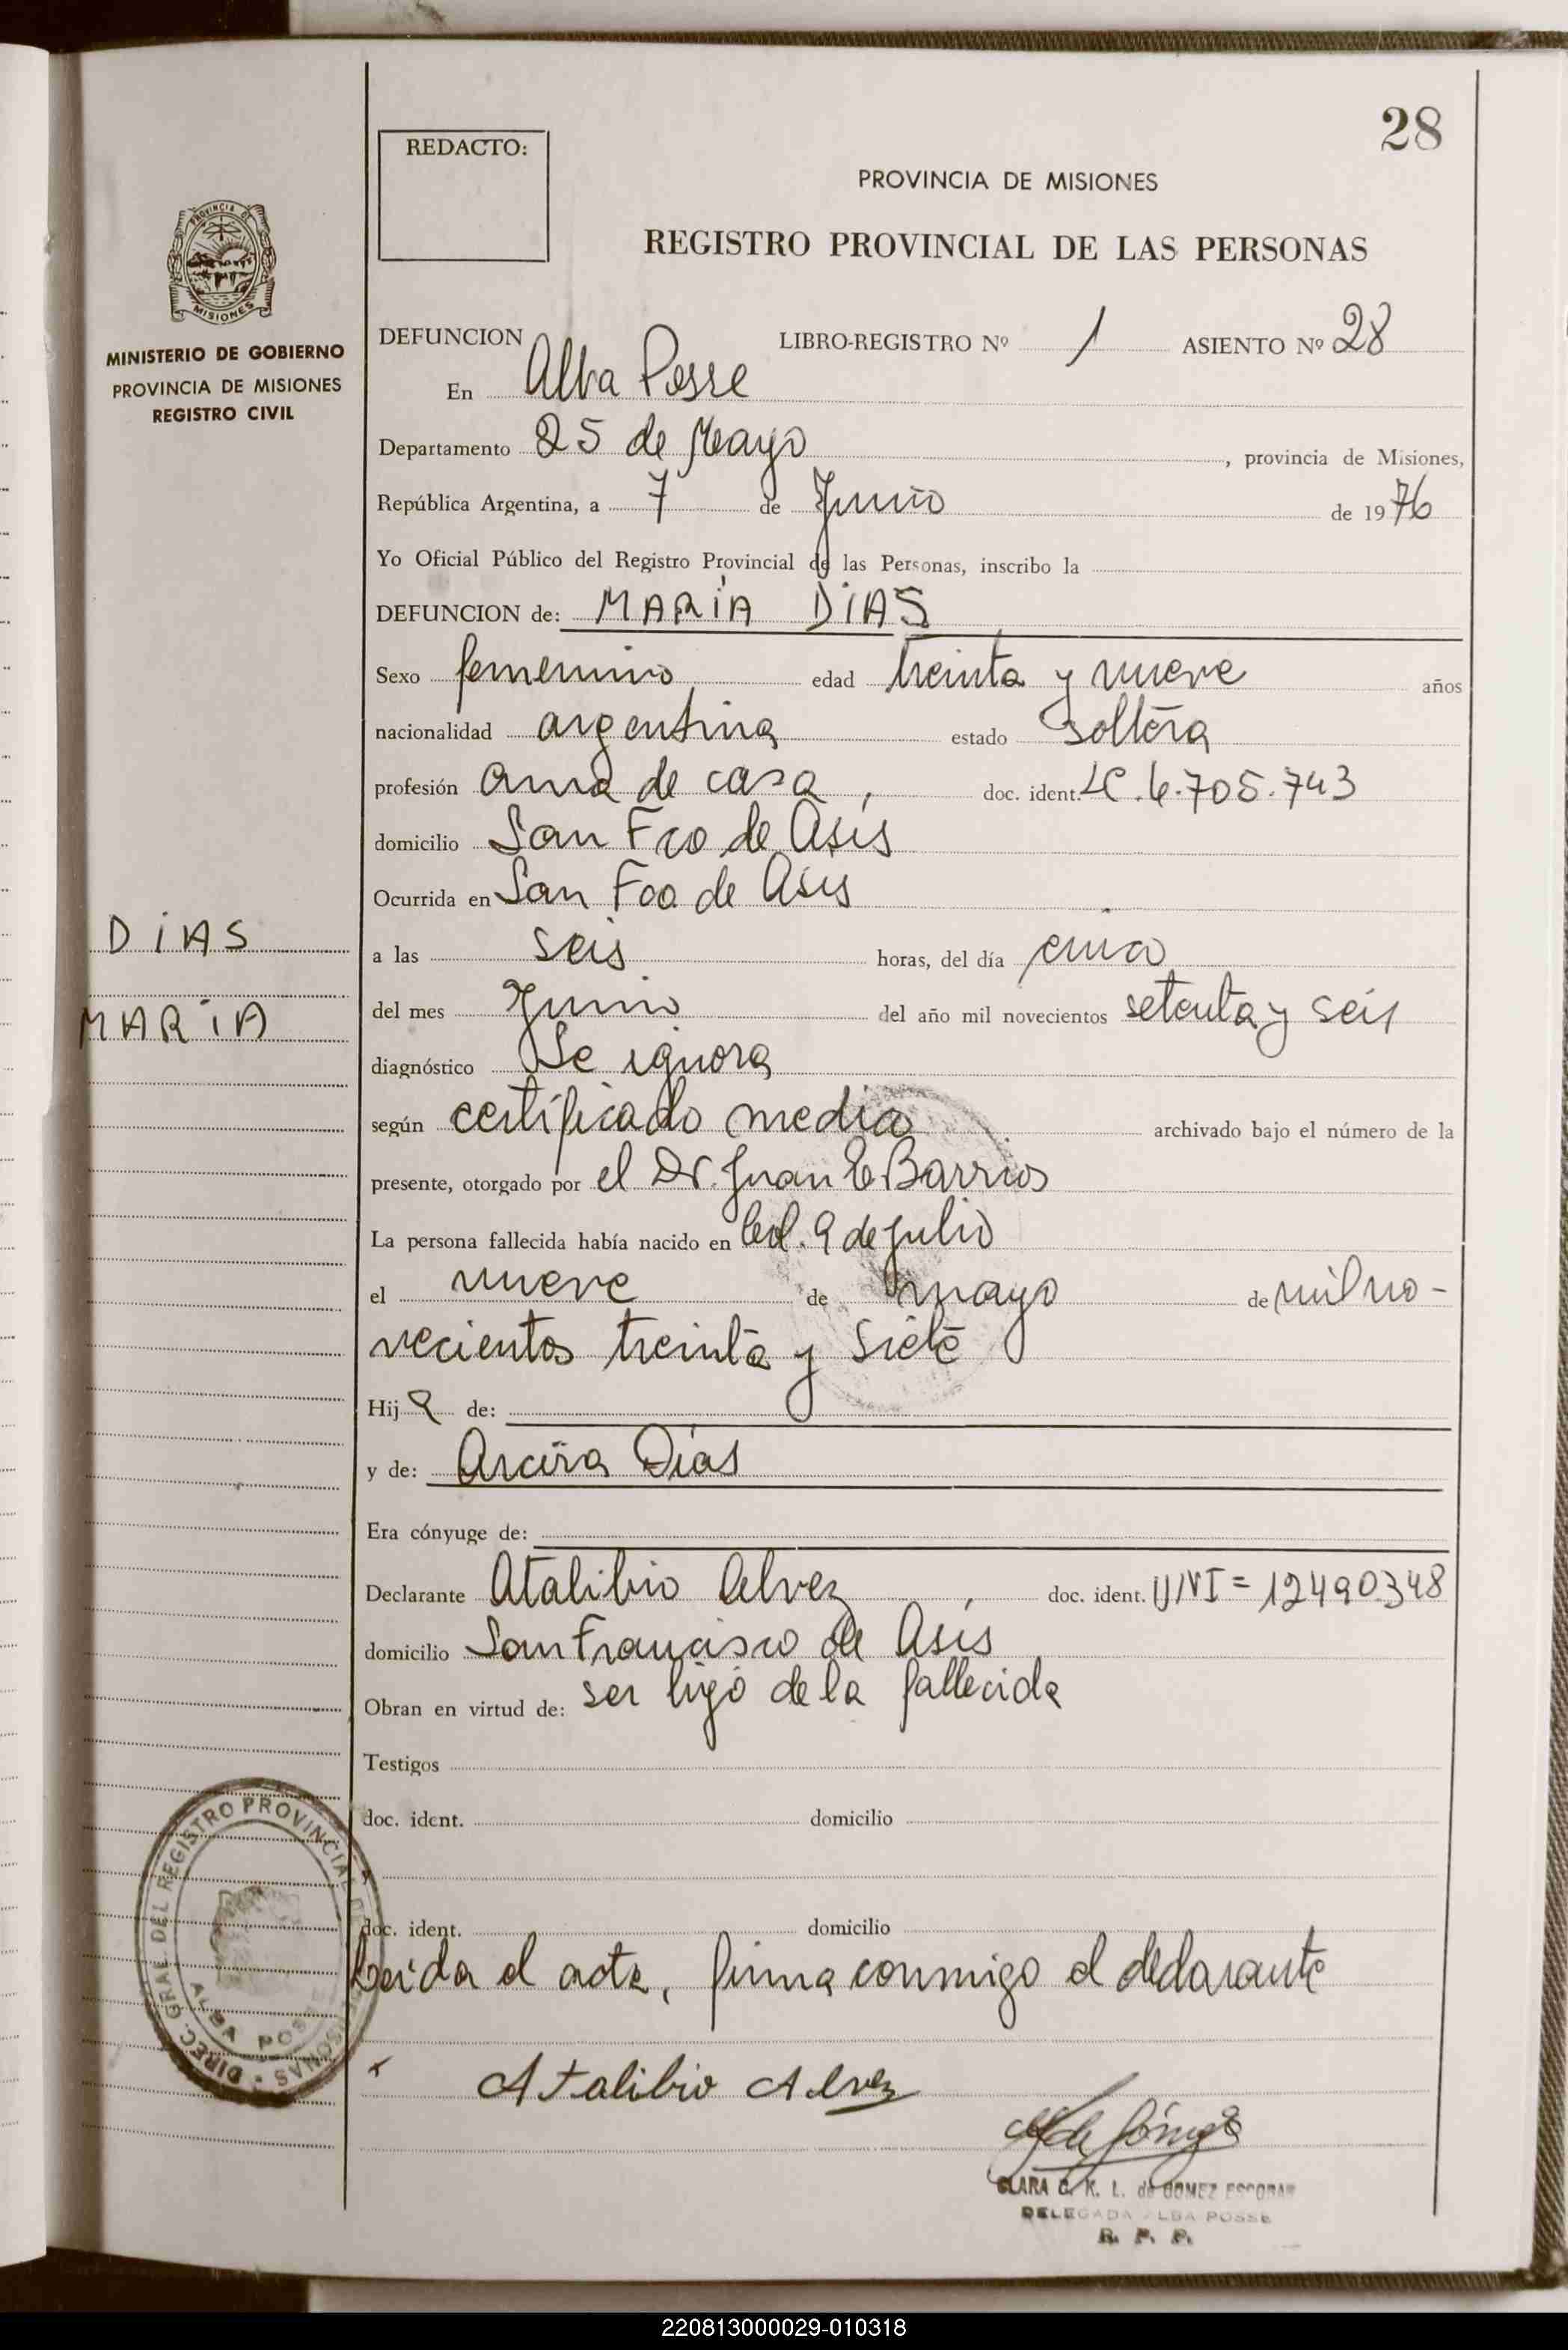 28
REDACTO:
PROVINCIA DE MISIONES
REGISTRO PROVINCIAL DE LAS PERSONAS
PROVINCIA DE
MISIONES
MINISTERIO DE GOBIERNO
PROVINCIA DE MISIONES
REGISTRO CIVIL
DEFUNCION LIBRO-REGISTRO Nº 1 ASIENTO Nº 28
En Alba Posse
Departamento 25 de Mayo, provincia de Misiones,
República Argentina, a 7 de Junio de 1976
Yo Oficial Público del Registro Provincial de las Personas, inscribo la
DEFUNCION de: MARIA DIAS
Sexo femenino edad treinta y nueve años
nacionalidad argentina estado soltera
profesión ama de casa, doc. ident. LC. 6.705.743
domicilio San Fco de Asís
Ocurrida en San Fco de Asis
DIAS
a las seis horas, del día cinco
MARIA
del mes Junio del año mil novecientos setenta y seis
diagnóstico Se ignora
según certificado medico archivado bajo el número de la
presente, otorgado por el Dr. Juan E Barrios
La persona fallecida había nacido en Col. 9 de julio
el nueve de mayo de mil no-
vecientos treinta y siete
Hija de:
y de: Arcira Dias
Era cónyuge de:
Declarante Atalibio Alvez, doc. ident. = 12490348
domicilio San Francisco de Asis
Obran en virtud de: ser hijo de la fallecida
Testigos
doc. ident. domicilio
y
doc. ident. domicilio
Leida el acta, firma conmigo el declarante
DIREC. GRAL. DEL REGISTRO PROVINCIAL DE PERSONAS
ALBA POSSE
x Atalibio Alvez
de Gómez
CLARA C. K. L. de GOMEZ ESCOBAR
DELEGADA ALBA POSSE
R. P. P.
220813000029-010318